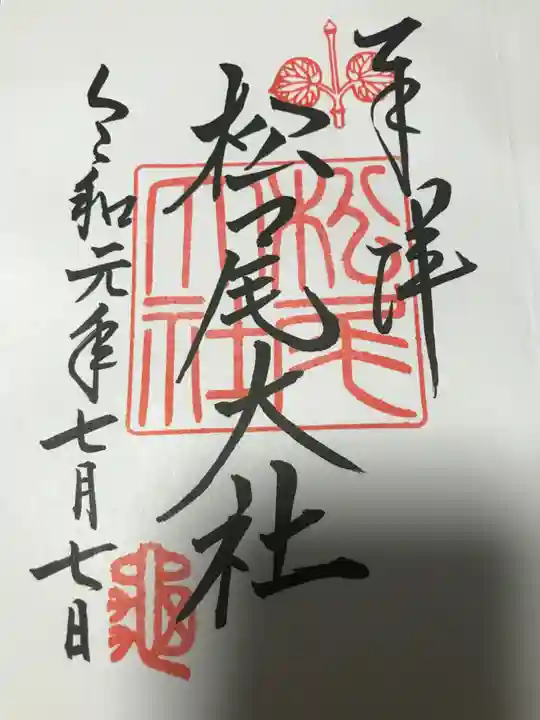 奉拝
松尾大社
松尾大社
令和元年七月七日
亀